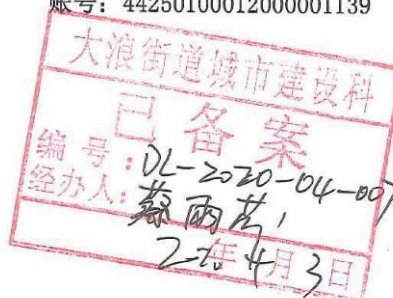 账号：44250100012000001139
大浪街道城市建设科
已备案
编号：DL-2020-04-007
经办人：蔡雨芸
2020年4月3日